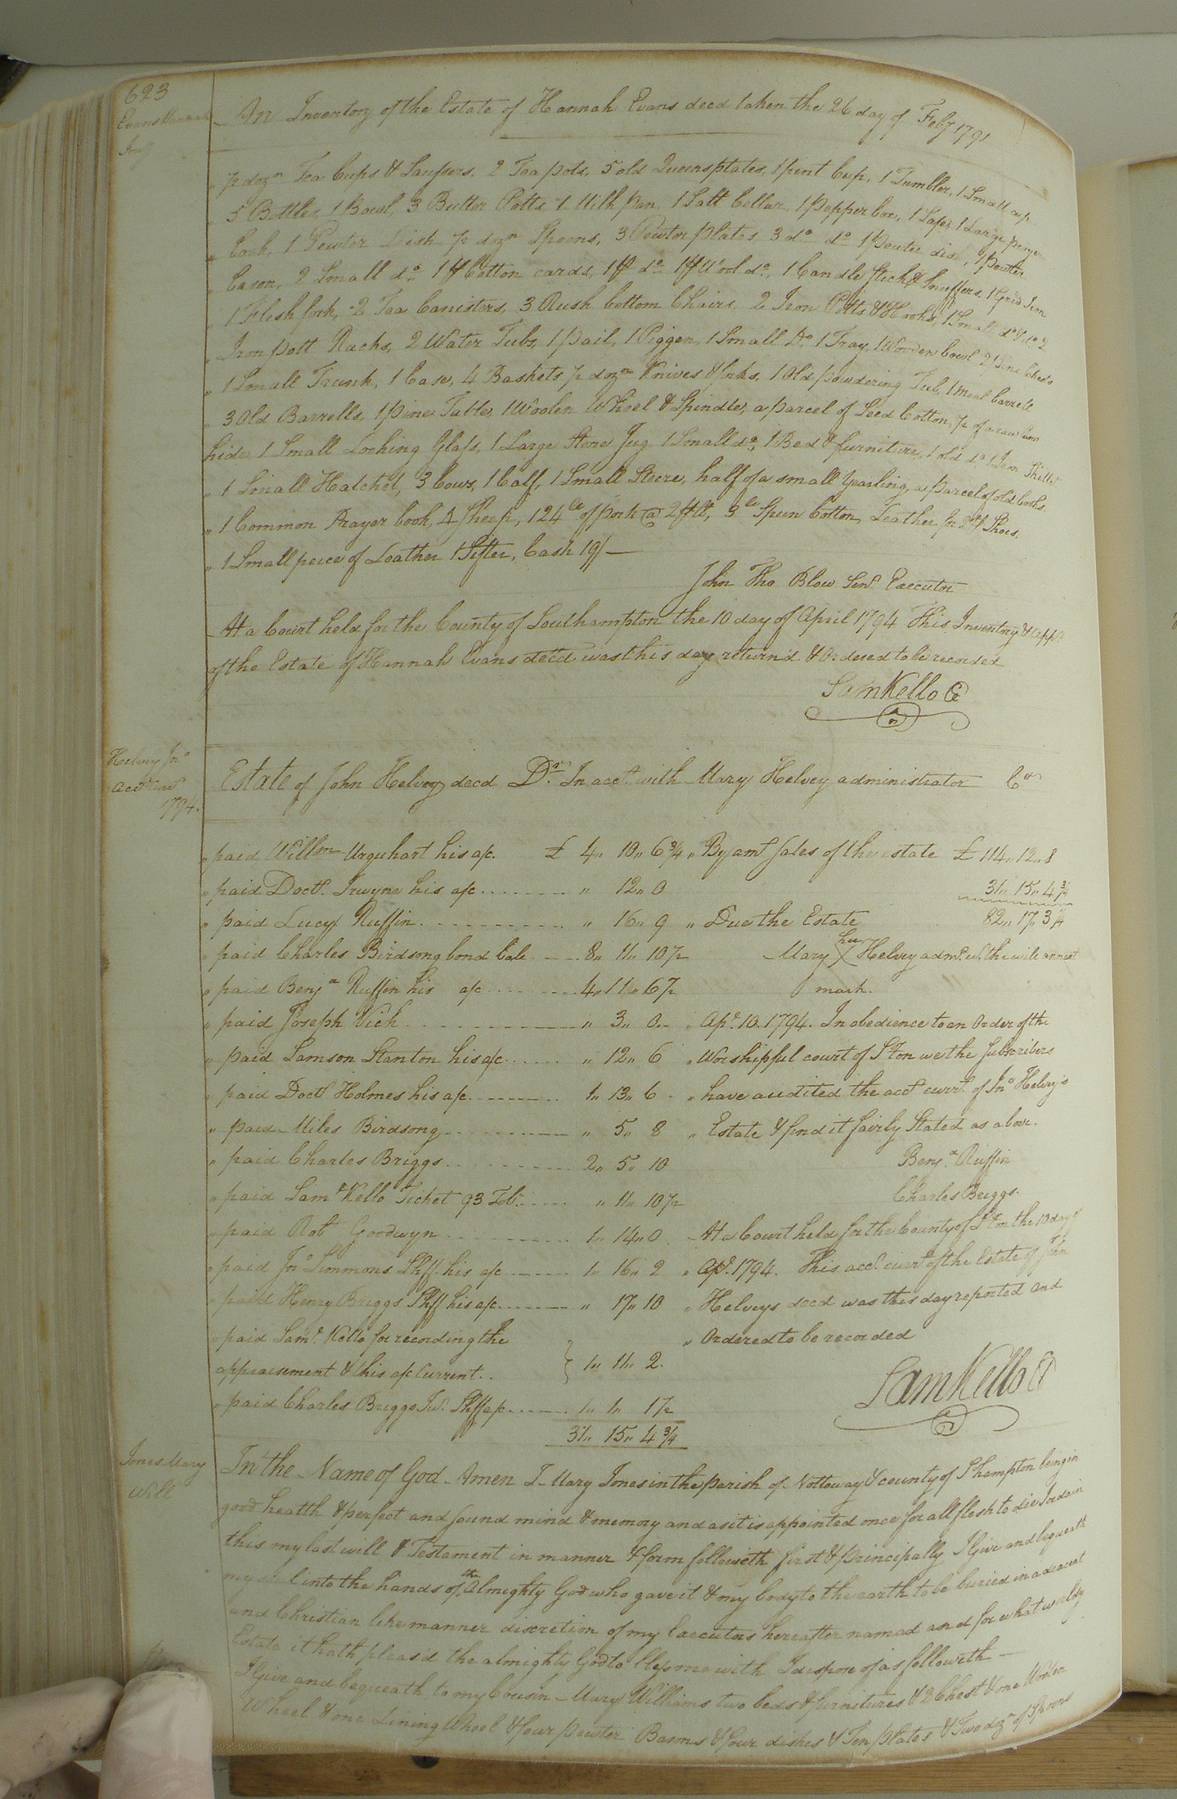 623
Evans Hannah
Inv
An Inventory of the Estate of Hannah Evans decd taken the 26 day of Feby 1791
" ½ dozn Tea Cups & Saussers, 2 Tea pots, 5 old Queensplates, 1 pint Cup, 1 Tumbler, 1 Small cup
" 5 Bottles, 1 Bowl, 3 Butter Potts 1 Milk pan 1 Salt Cellar, 1 pepper box, 1 Safe, 1 Large
" 1 Pewter Dish ½ dozn Spoons, 3 Pewter plates 3 do do 1 Pewter dish, 1 pewter
" Bason, 2 Small do 1 pr Cotton cards, 1 pr do 1 pr Wool do, 1 Candle stick & Snuffers, 1 Grid Iron
" 1 Flesh fork, 2 Tea Canisters, 3 Rush bottom Chairs, 2 Iron Potts & Hooks, 1 Small do
" Iron pott Racks, 2 Water Tubs, 1 pail, 1 Piggen, 1 Small Do 1 Tray, 1 Wooden bowl 2 Pine Chests
" 1 Small Trunk, 1 Case, 4 Baskets ½ dozn Knives & forks, 1 Old powdering Tub, 1 meal barrele
" 3 Old Barrells, 1 pine Table, 1 Woolen Wheel & Spindle, a parcel of Seed Cotton, ½ of a raw
hide 1 Small Looking Glass, 1 Large Stone Jug 1 Small do, 1 Bed & furniture, 1 old do 1 Iron Skillet
" 1 Small Hatchel, 3 Cows, 1 Calf, 1 Small Steere, half of a small Yearling, a parcel of old books
" 1 Common Prayer book, 4 Sheep, 124 lb of pork @ , 3 lb Spun Cotton, Leather for 2 pr Shoes,
" 1 Small peice of Leather 1 Sifter, Cash 19/—
John Tho Blow Senr Executor
At a Court held for the County of Southampton the 10 day of April 1794 This Inventory & App
of the Estate of Hannah Evans decd was this day return'd & Ordered to be recorded
Sam Kello Cl
Helvey Jno
acct Curr
1794.
Estate of John Helvey decd Dr In acct with Mary Helvey administrator Cr
" paid Willm Urquhart his a/c. £ 4" 10" 6¾ " By amt Sales of the estate £ 114" 12" 8
" paid Doctr Irwyne his a/c " 12" 0 31" 15" 4¾
" paid Lucy Ruffin " 16" 9 " Due the Estate 82" 17" 3¼
" paid Charles Birdsong bond Bale 8" 11" 10½ Mary her X Helvey admr of the will annext
" paid Benja Ruffin his a/c 4" 11" 6½ mark.
" paid Joseph Vick " 3" 0 " Apl 10. 1794. In obedience to an Order of the
" paid Samson Stanton his a/c " 12" 6 " Worshipful court of S'ton we the Subscribers
" paid Doctr Holmes his a/c 1" 13" 6 " have audited the acct currt of Jno Helvey's
" paid Miles Birdsong " 5" 8 " Estate & find it fairly Stated as above.
" paid Charles Briggs 2" 5" 10 Benja Ruffin
" paid Saml Kello Ticket 93 " 11" 10½ Charles Briggs.
" paid Robt Goodwyn 1" 14" 0 — At a Court held for the County of S'ton the 10 day of
" paid Jo Simmons Shff his a/c 1" 16" 2 " Apl. 1794. This acct currt of the Estate of John
" paid Henry Briggs Shff his a/c " 17" 10 " Helveys decd was this day reported and
" paid Saml Kello for recording the " Ordered to be recorded
appraisement & this a/c Current. } 1" 11" 2. Sam Kello Cl
" paid Charles Briggs Junr Shff a/c 1" 1" 1½
31" 15" 4¾
Jones Mary
Will
In the Name of God Amen I Mary Jones in the parish of Nottoway & county of S'hampton being in
good health & perfect and sound mind & memory and as it is appointed once for all flesh to die I ordain
this my last will & Testament in manner & form followeth first & principally I Give and bequeath
my soul into the hands of the Almighty God who gave it & my body to the earth to be buried in a decent
and Christian like manner discretion of my Executors hereafter named and for what worldly
Estate it hath pleasd the almighty God to bless me with I dispose of as followeth —
I Give and bequeath to my Cousin Mary Williams two beds & furnitures & 2 Chest & one Woolen
Wheel & one Lining Wheel & four pewter Basons & four dishes & Ten plates & Two dozn of Spoons